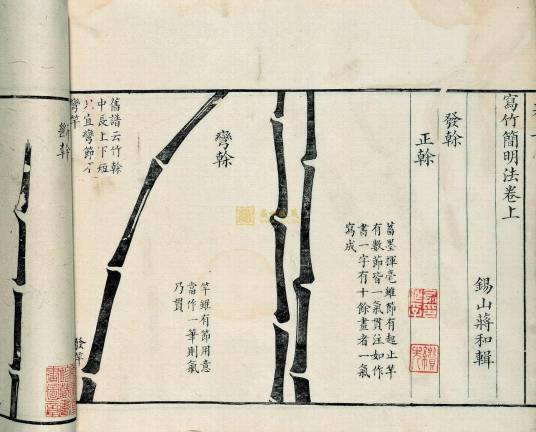 寫竹簡明法卷上
錫山蔣和輯
發幹
正幹
蓄墨揮毫雖節有起止竿
有數節皆一氣貫注如作
書一字有十餘畫者一氣
寫成
彎幹
竿雖有節用意
當作一筆則氣
乃貫
舊譜云竹幹
中長上下短
只宜彎節不
彎竿
發竿
斷幹